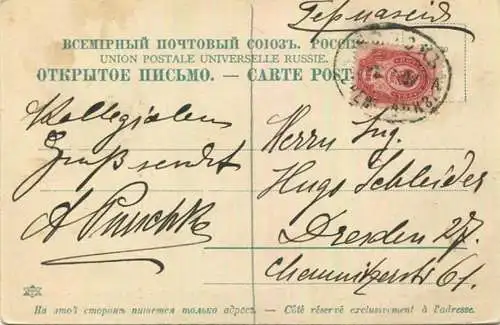 Германія
ВСЕМІРНЫЙ ПОЧТОВЫЙ СОЮЗЪ. РОССІЯ
UNION POSTALE UNIVERSELLE RUSSIE.
ОТКРЫТОЕ ПИСЬМО. — CARTE POST
Kollegialen
Gruß sendet
A
Herrn Ing.
Hugo Schleider
Dresden 27.
Chemnitzerstr 61.
На этой сторонѣ пишется только адресъ. — Côté réservé exclusivement à l'adresse.